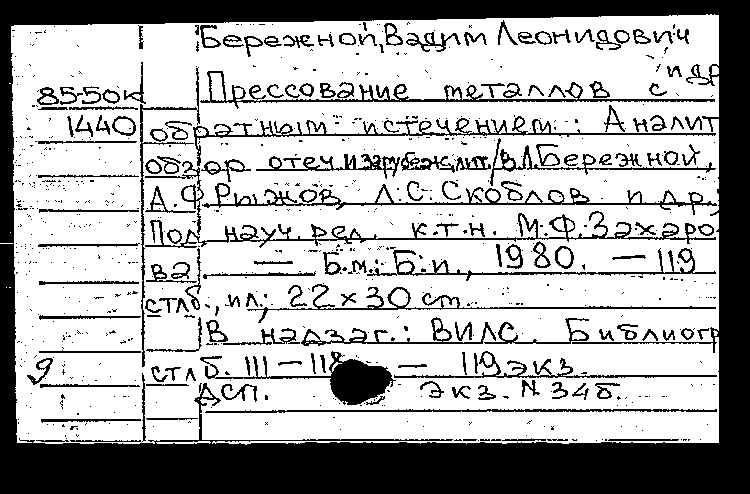 Бережной, Вадим Леонидович
и др
85-50к Прессование металлов с
1440 обратным истечением: Аналит
обзор отеч. и зарубеж. лит. / В.Л. Бережной,
А.Ф. Рыжов, Л.С. Скоблов и др.;
Под науч. ред. к.т.н. М.Ф. Захаро-
ва. — Б.м.: Б.и., 1980. — 119
стлб., ил; 22 × 30 cm.
В надзаг.: ВИЛС. Библиогр
9 стлб. 111 — 118 — 119 экз.
ДСП. Экз. N 346.